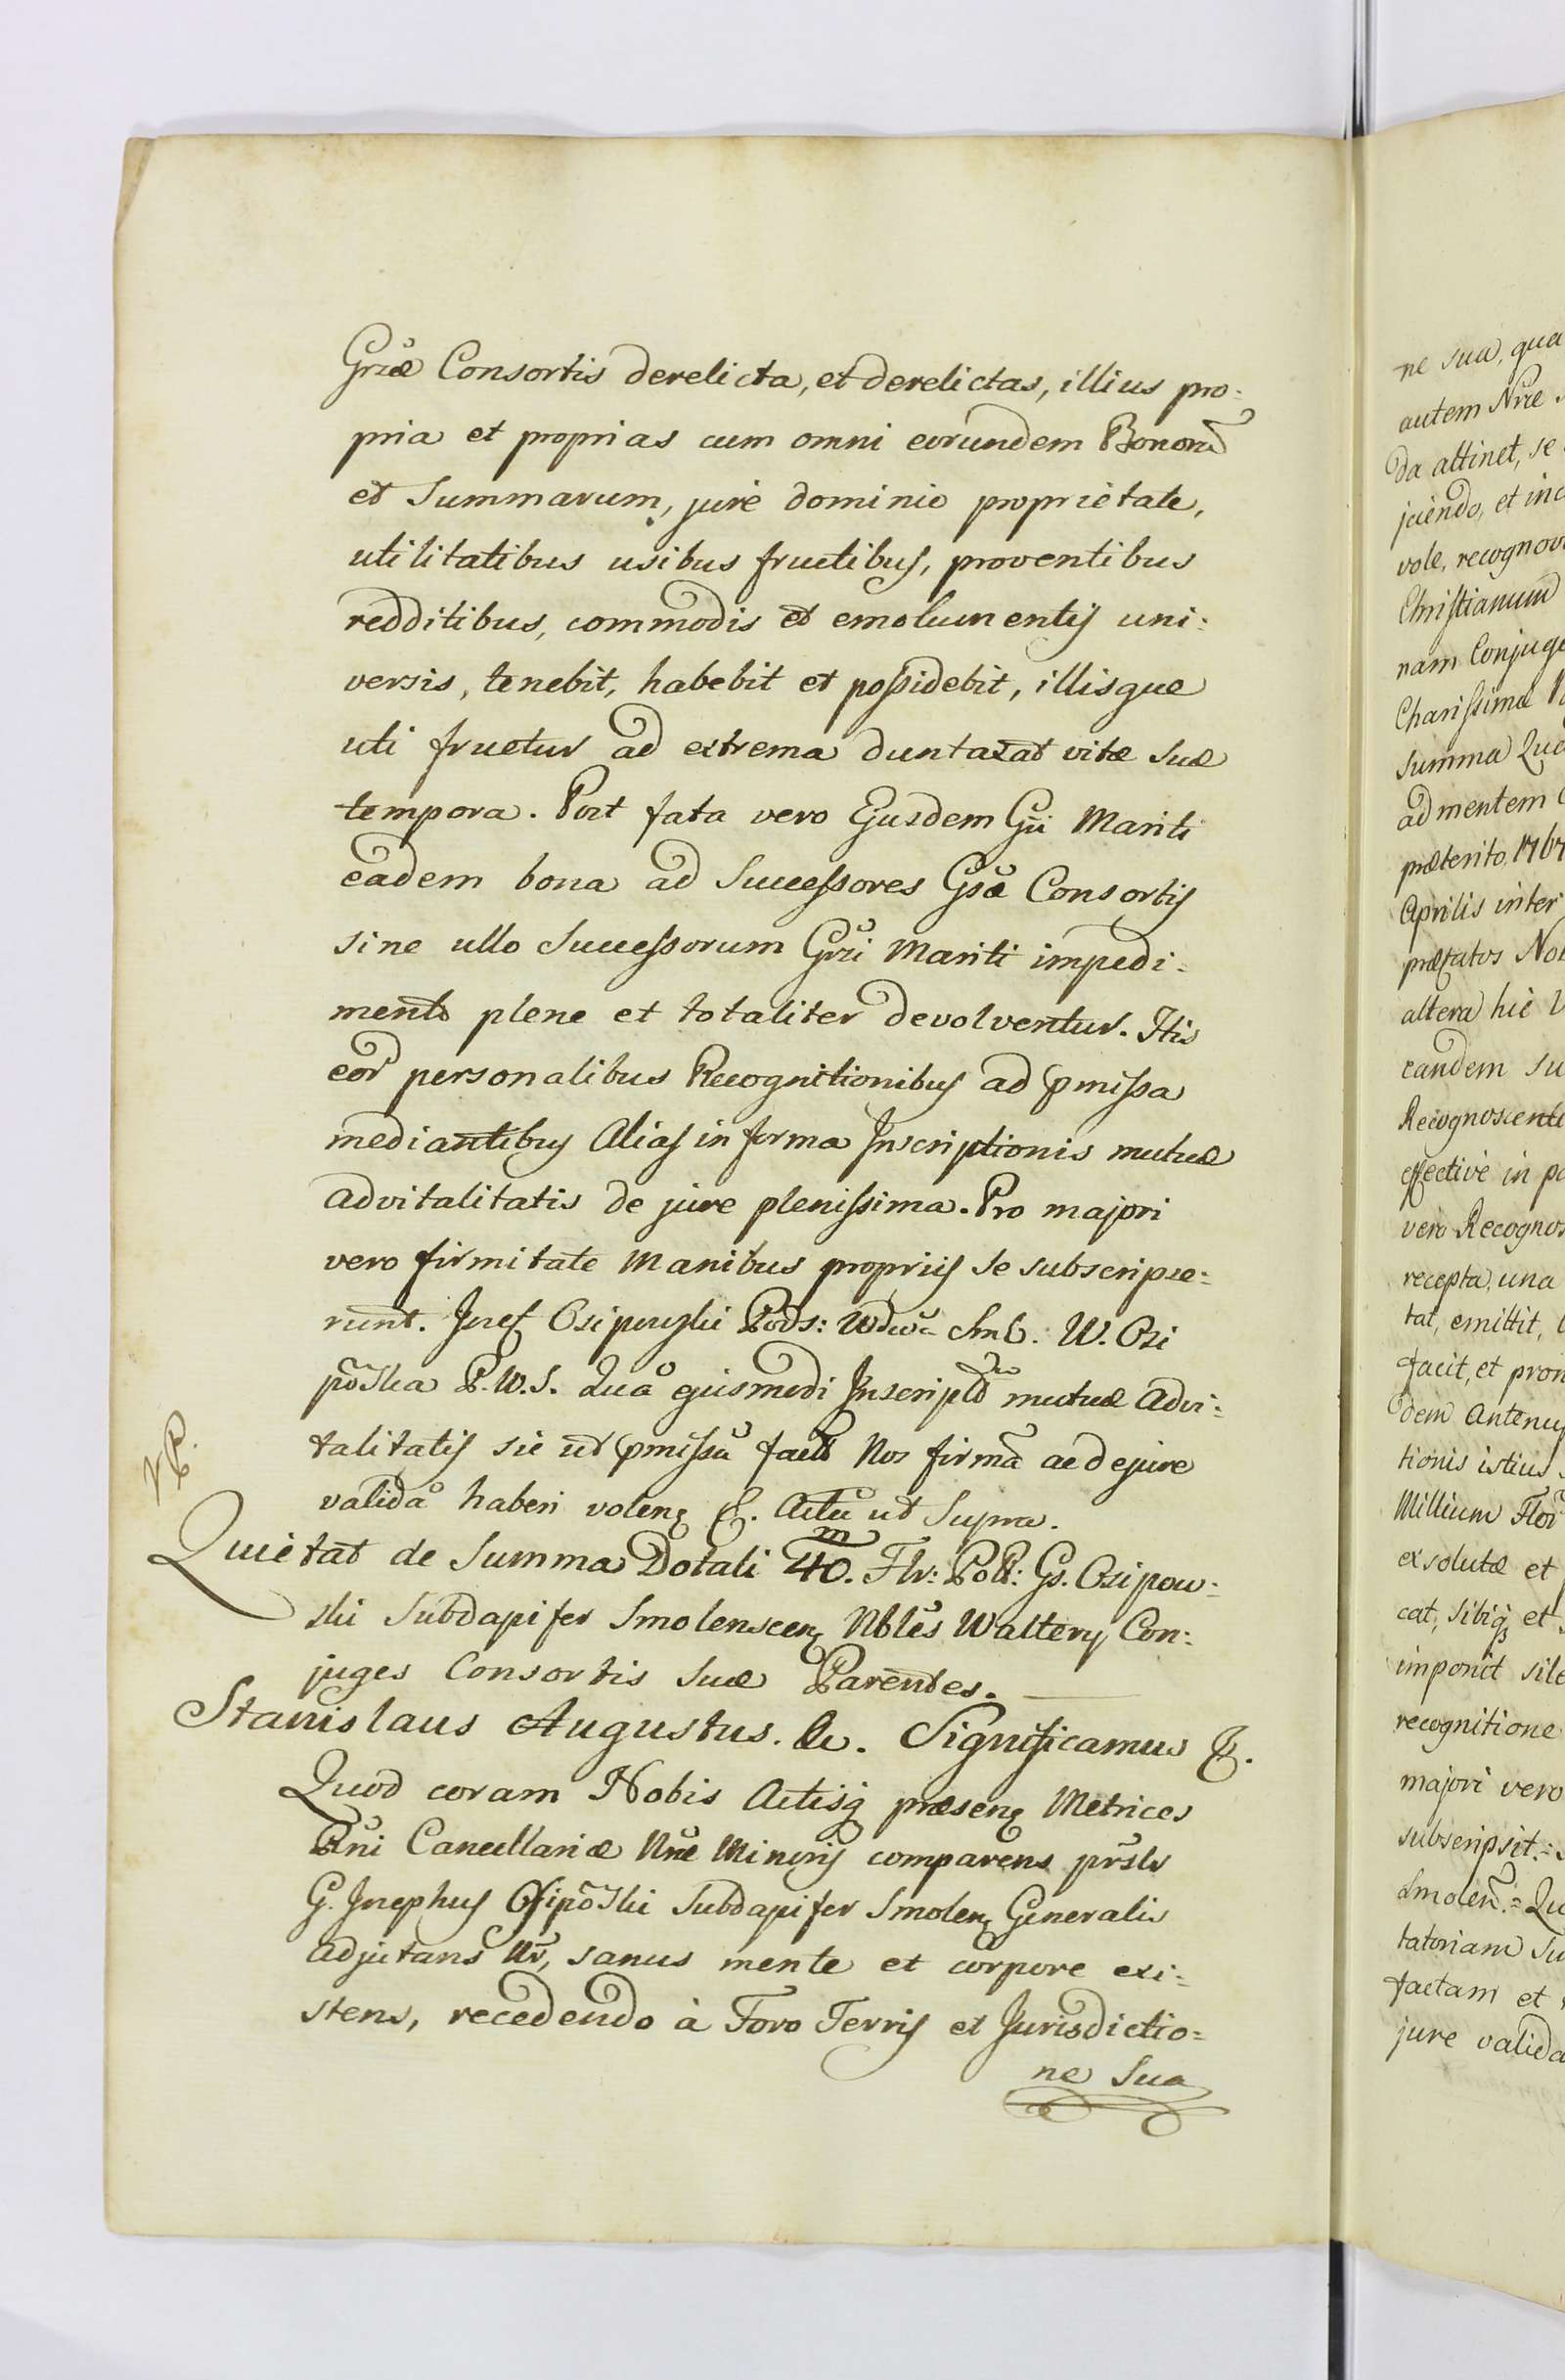 Grsæ Consortis derelicta, et derelictas, illius pro:
pria et proprias cum omni eorundem Bonor
et Summarum, jure dominio proprietate,
utilitatibus usibus fructibus, proventibus
redditibus, commodis et emolumentis uni:
versis, tenebit, habebit et possidebit, illisque
uti fruetur ad extrema duntaxat vitæ suæ
tempora. Post fata vero Ejusdem Gsi Mariti
eadem bona ad Successores Gsæ Consortis
sine ullo Successorum Grsi Mariti impedi:
mento plene et totaliter devolventur. His
eor personalibus Recognitionibus ad pmissa
mediantibus Alias in forma Inscriptionis mutuæ
advitalitatis de jure plenissima. Pro majori
vero firmitate Manibus propriis se subscripse:
runt. Josef Osipowski Pods: Wdwa Sml. W. Osi
pôska P. W. S. Qua ejusmodi Inscript mutuæ Advi:
talitatis sic ut pmissu facta Nos firma ac de jure
valida haberi volen &. Actu ut Supra.
Quietat de Summa Dotali 40. Flr: Poll: Gs. Osipow:
ski Subdapifer Smolenscen Nbles Waltery Con:
juges Consortis suæ Parentes.
Stanislaus Augustus. &. Significamus &.
Quod coram Nobis Actisq præsen Metrices
Rni Cancellariæ Nræ Minoris comparens prsls
G. Josephus Osipôski Subdapifer Smolen Generalis
adjutans Nr, sanus mente et corpore exi:
stens, recedendo à Foro Terris et Jurisdictio=
ne Sua
ne sua, qua
autem Nræ
da attinet, se
jciendo, et inc
vole, recognov
Christianum
nam Conjuge
Charissimæ
Summa Qua
ad mentem
præterito 1767
Aprilis inter
præfatos Nob
altera hic
eandem su
Recognoscente
effective in po
vero Recognos
recepta, una
tat, emittit,
facit, et pron
dem Antenup
tionis istius
Millium Flor
exsolutæ et
cat, sibiq et
imponit sile
recognitione
majori vero
subscripsit.
Smolen. Qu
tatoriam su
factam et
jure valida